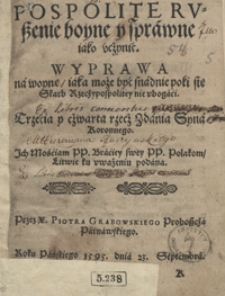 POSPOLITE RV-
ßenie hoyne y spráwne
iáko vczynić.
WYPRAWA
ná woynę, iáka może być snádnie poki się
Skarb Rzeczypospolitey nie vbogáci.
Trzecia y cżwarta rzecż Zdánia Syná
Koronnego.
Ich Mośćiam PP. Bráciey swey PP. Polakom,
Litwie ku vważeniu podána.
Przez X. Piotra Grabowskiego Proboszcżá
Párnáwskiego.
Roku Páńskiego 1595. dniá 23. Septembra.
K
5.238